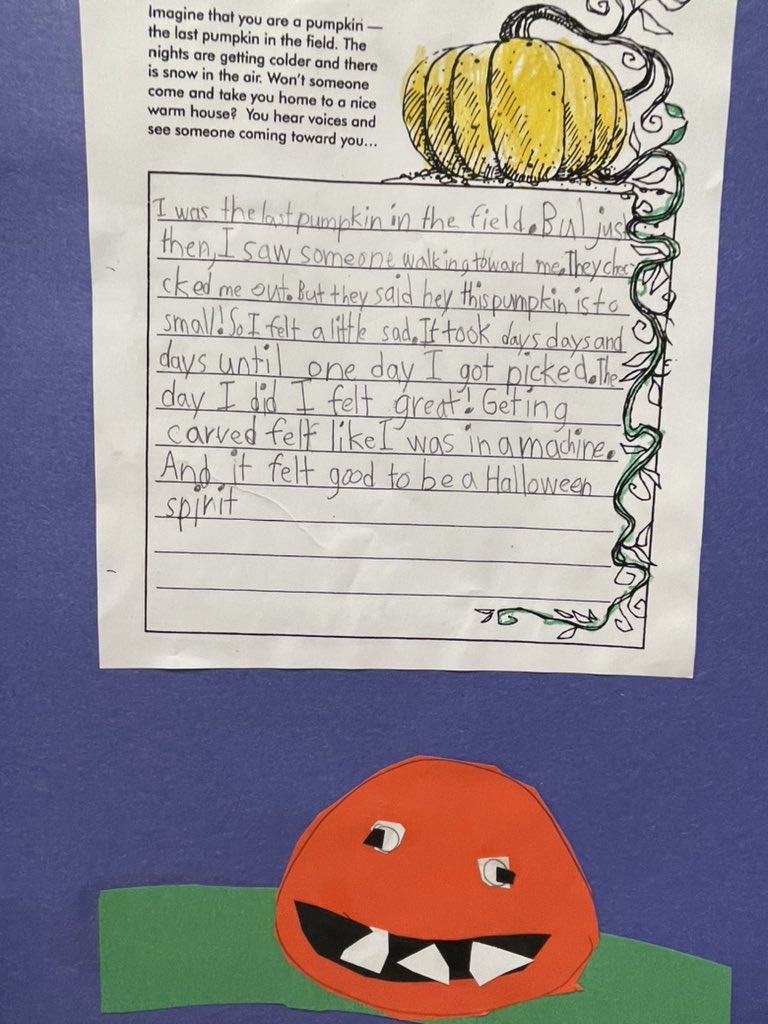 Imagine that you are a pumpkin —
the last pumpkin in the field. The
nights are getting colder and there
is snow in the air. Won't someone
come and take you home to a nice
warm house? You hear voices and
see someone coming toward you...
I was the last pumpkin in the field. But just
then, I saw someone walking toward me. They chec-
cked me out. But they said hey this pumpkin is to
small! So I felt a little sad. It took days days and
days until one day I got picked. The
day I did I felt great! Geting
carved felt like I was in a machine.
And it felt good to be a Halloween
spirit